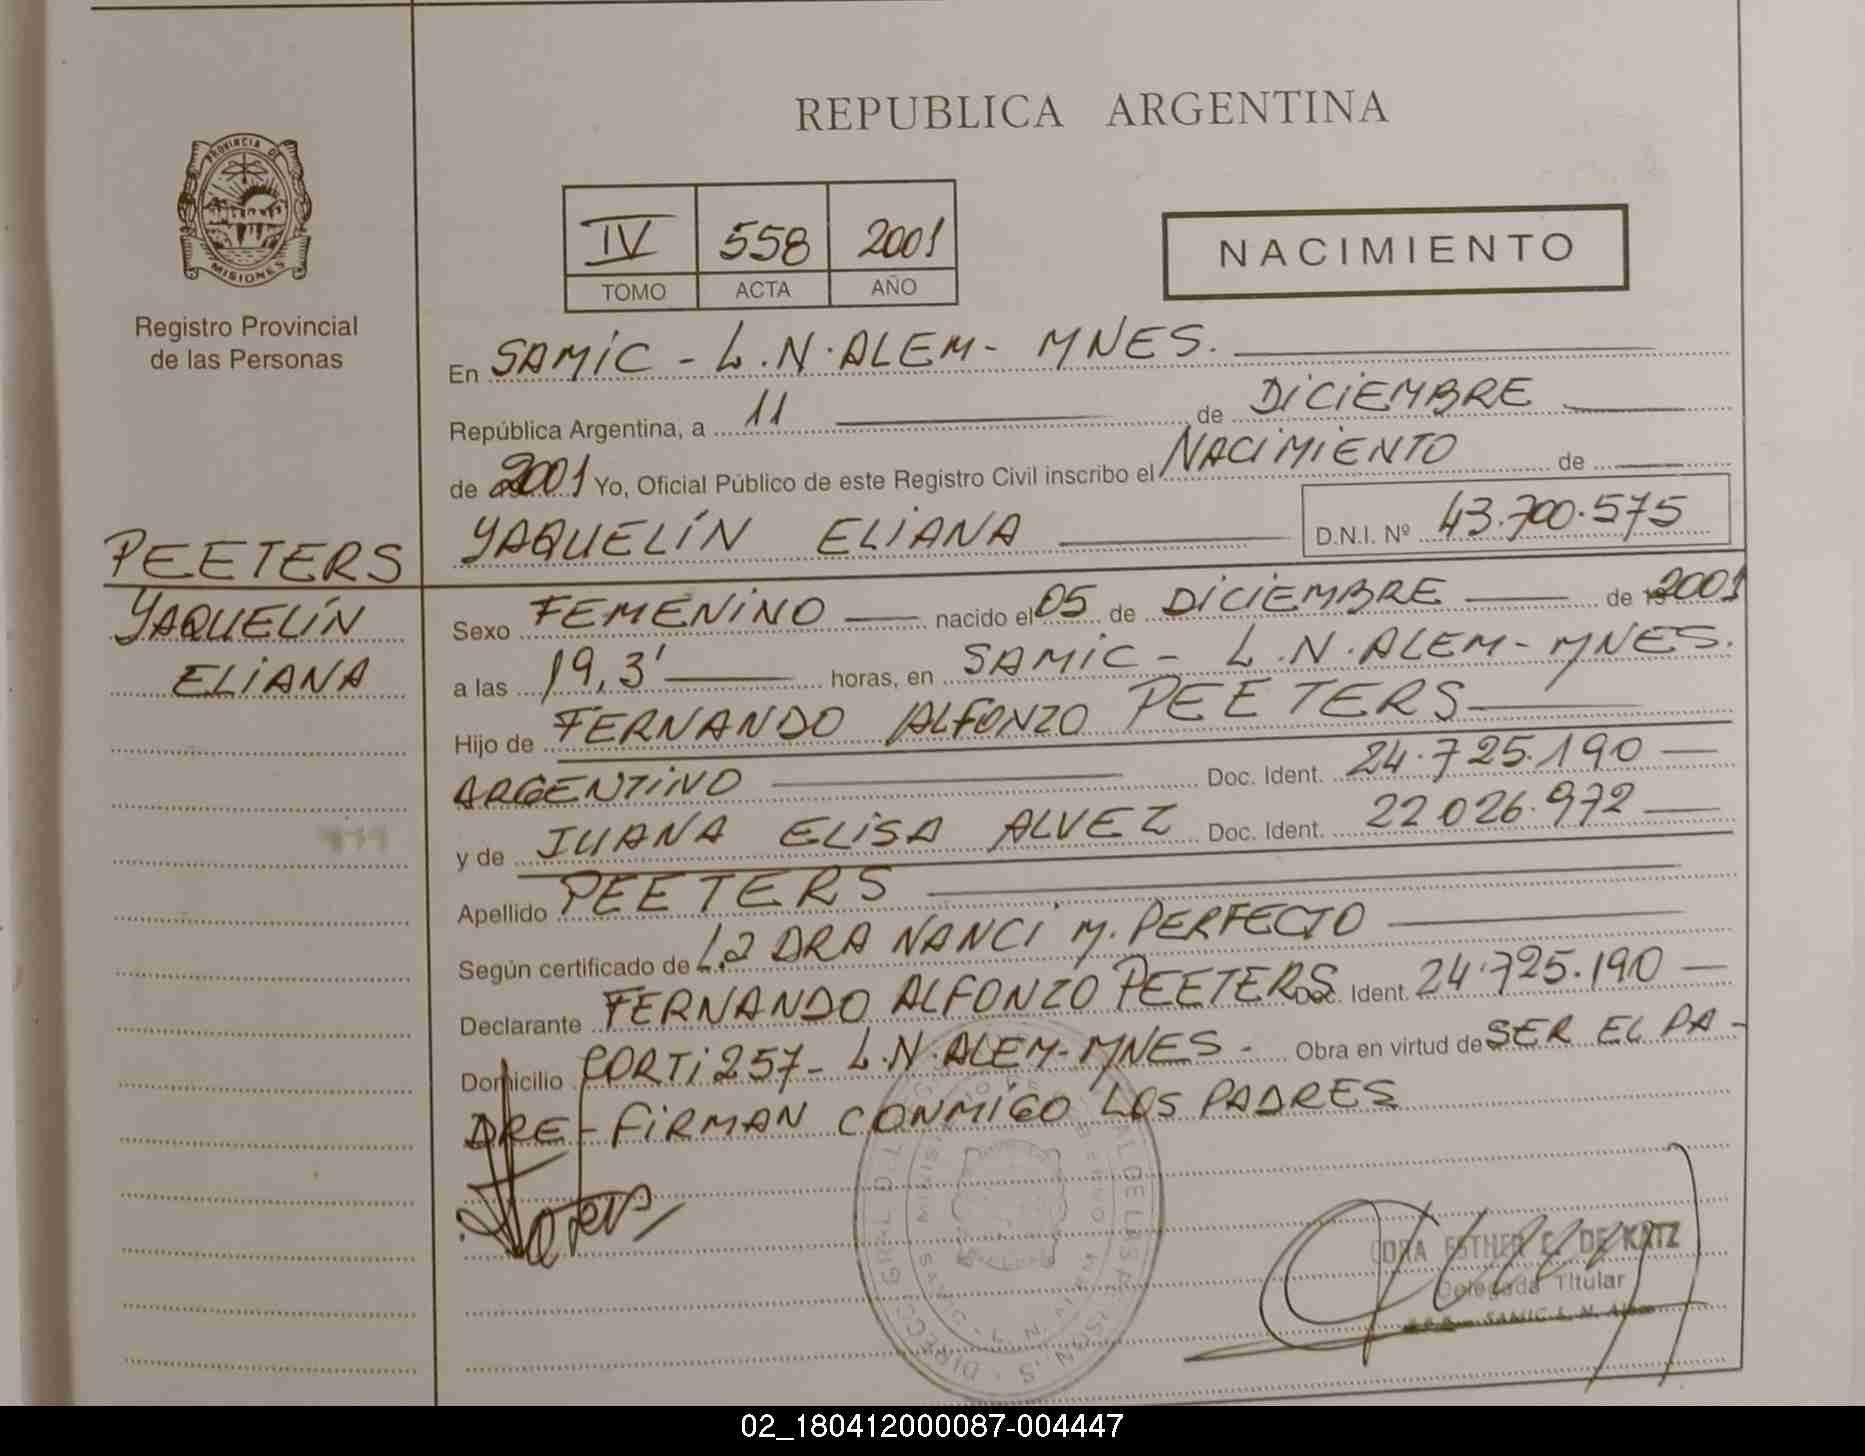 REPUBLICA ARGENTINA
PROVINCIA DE
MISIONES
Registro Provincial
de las Personas
IV 558 2001
TOMO ACTA AÑO
NACIMIENTO
En SAMIC - L.N. ALEM - MNES.
República Argentina, a 11 de DICIEMBRE
de 2001 Yo, Oficial Público de este Registro Civil inscribo el NACIMIENTO de
YAQUELÍN ELIANA D.N.I. Nº 43.700.575
PEETERS
YAQUELÍN
ELIANA
Sexo FEMENINO nacido el 05 de DICIEMBRE de 2001
a las 19,3' horas, en SAMIC - L.N. ALEM - MNES.
Hijo de FERNANDO ALFONZO PEETERS
ARGENTINO Doc. Ident. 24.725.190
y de JUANA ELISA ALVEZ Doc. Ident. 22026.972
Apellido PEETERS
Según certificado de La DRA NANCI M. PERFECTO
Declarante FERNANDO ALFONZO PEETERS Doc. Ident. 24.725.190
Domicilio CORTI 257 - L.N. ALEM - MNES - Obra en virtud de SER EL PA-
DRE - FIRMAN CONMIGO LOS PADRES
ESTHER C. DE KATZ
Delegada Titular
SAMIC L. N. Alem
02_180412000087-004447